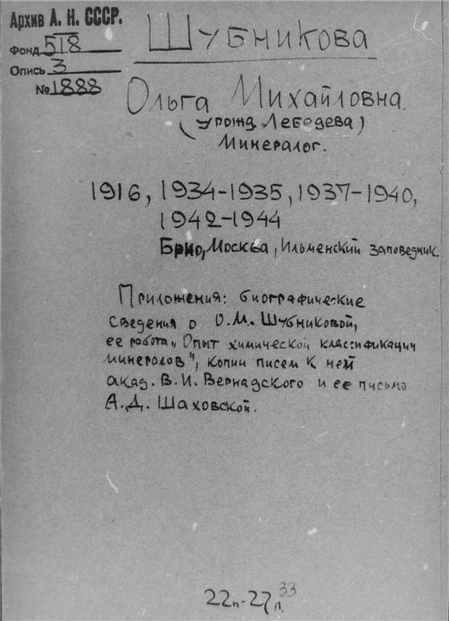 Архив А. Н. СССР.
Фонд 518
Опись 3
№ 1888
Шубникова
Ольга Михайловна.
(урожд. Лебедева)
Минералог.
1916, 1934-1935, 1937-1940,
1942-1944
Брно, Москва, Ильменский заповедник
Приложения: биографические
сведения о О.М. Шубниковой,
ее работа „Опыт химической классификации
минералов", копии писем к ней
акад. В.И. Вернадского и ее письмо
А.Д. Шаховской.
33
22п.-27л.